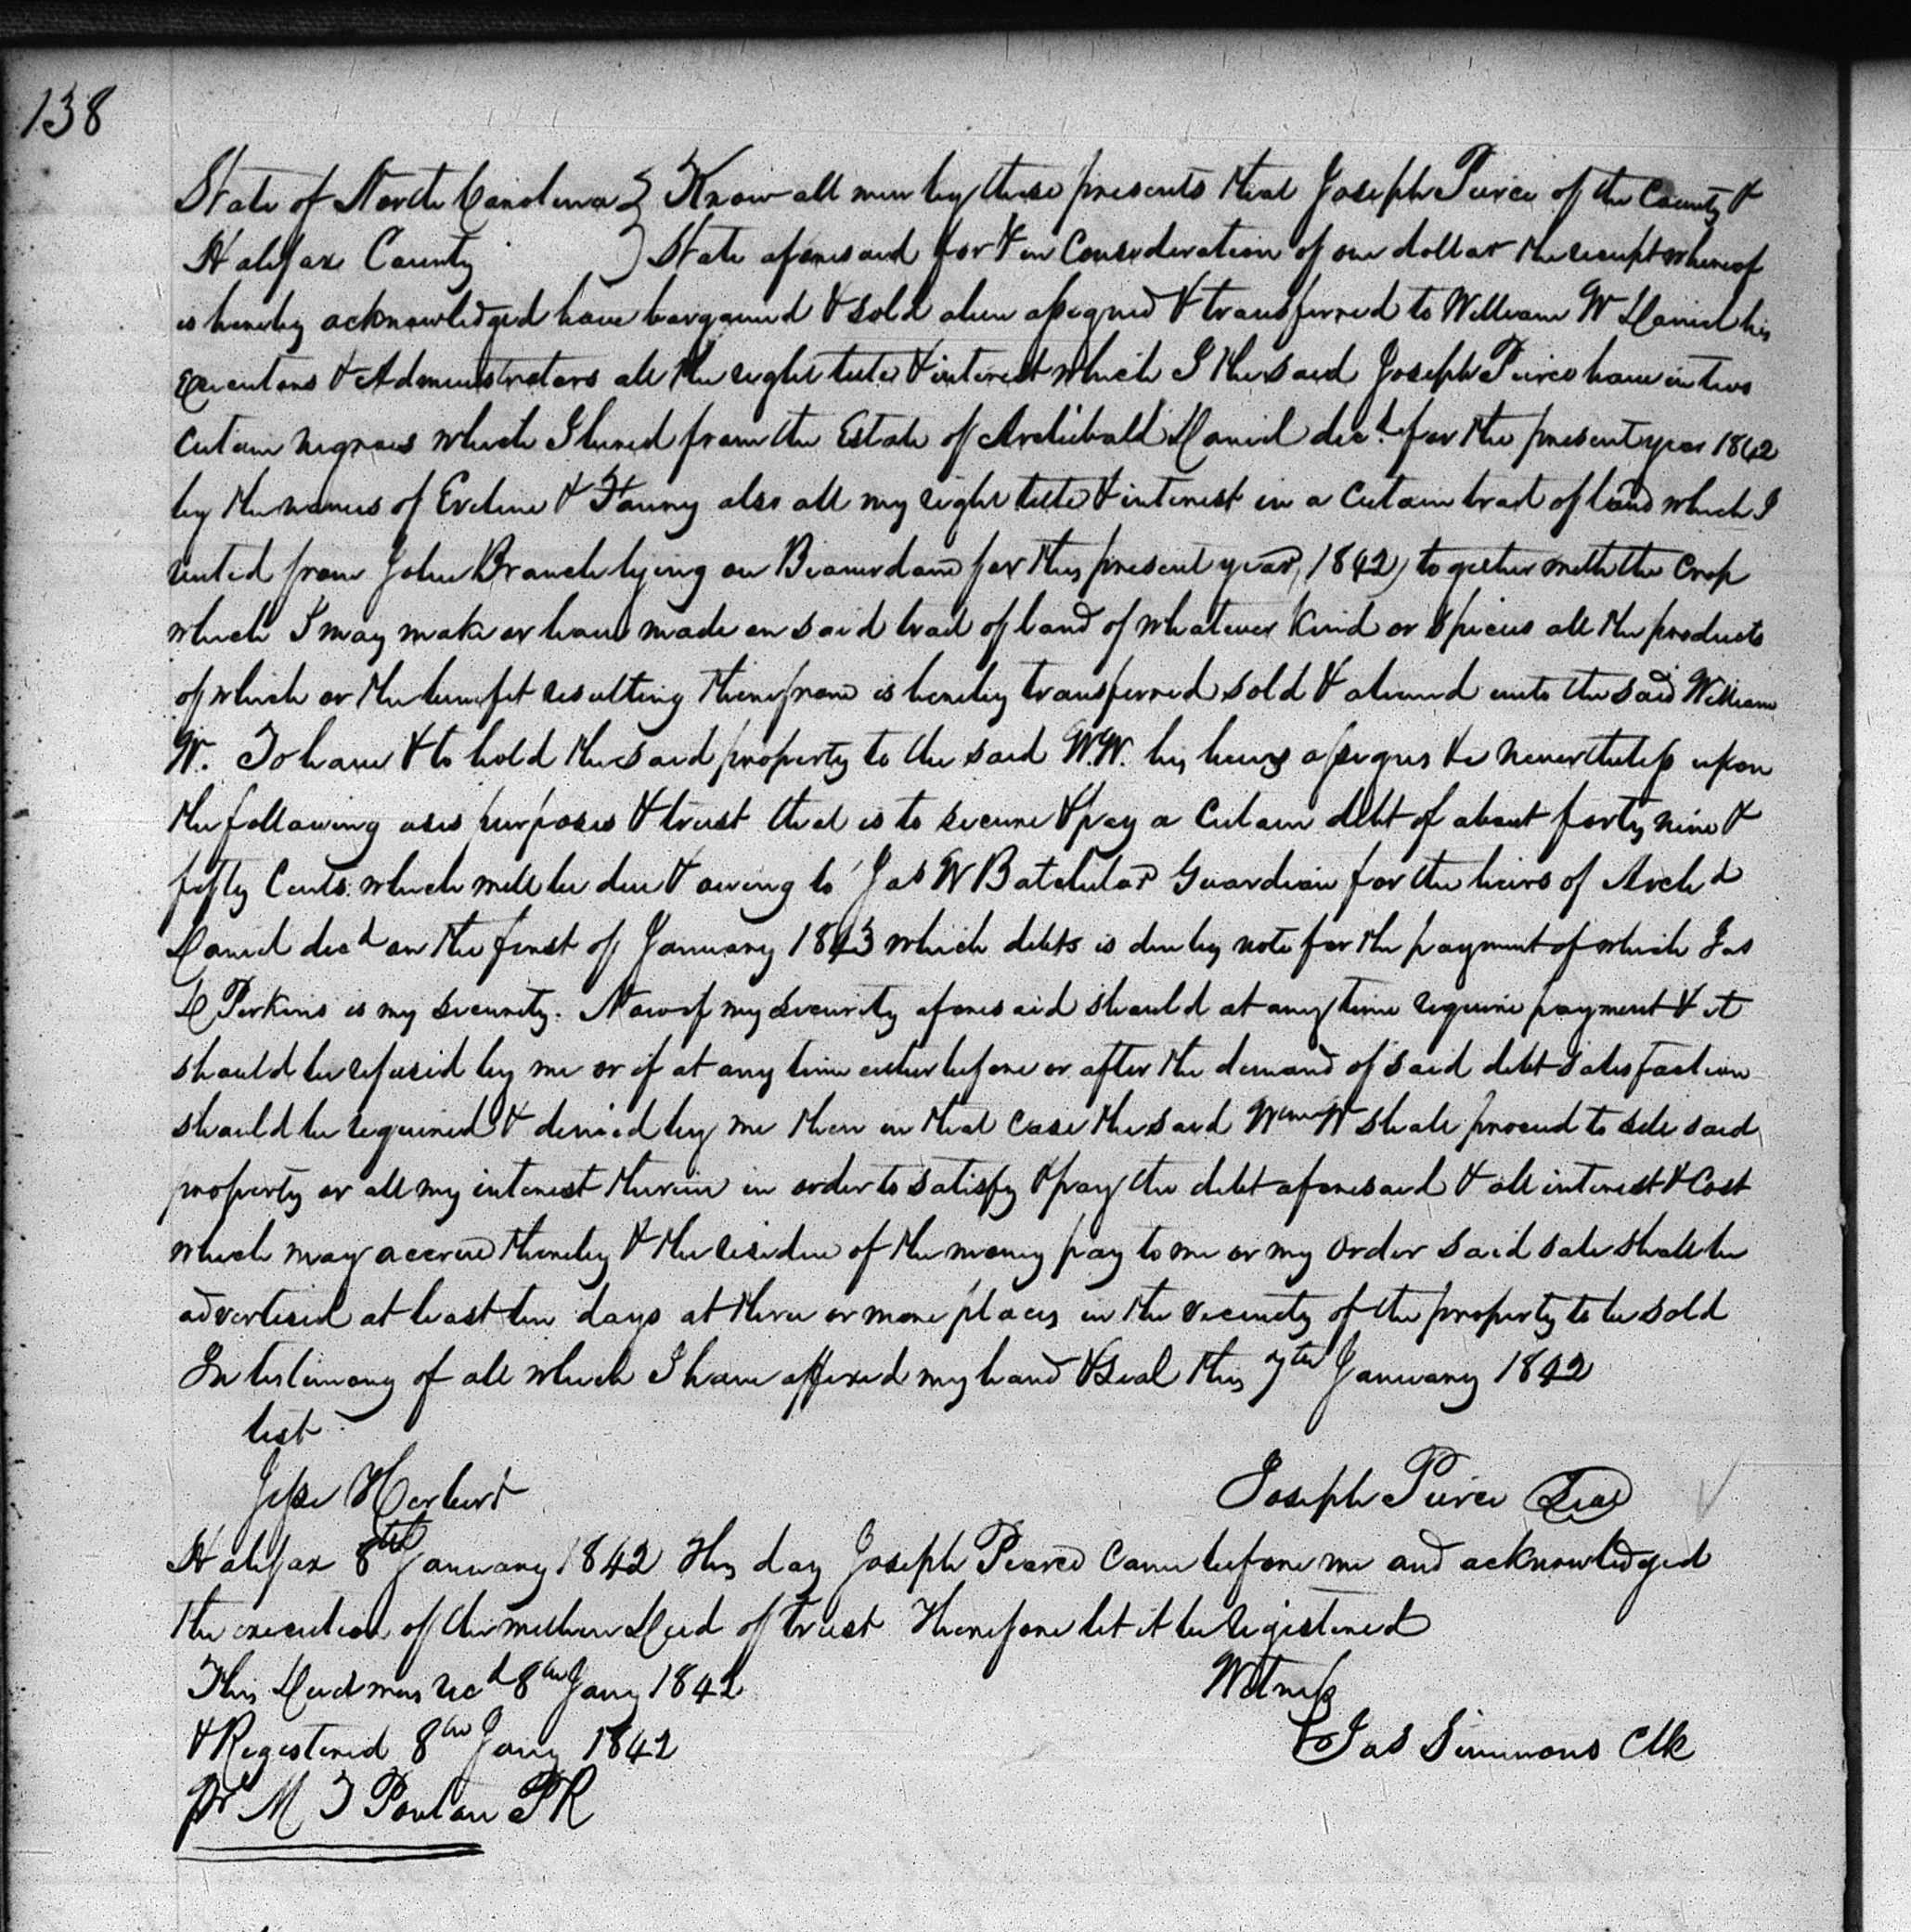 138
State of North Carolina } Know all men by these presents that Joseph Peirce of the County &
Halifax County } State aforesaid for & in Consideration of one dollar the receipt whereof
is hereby acknowledged have bargained & sold alien assigned & transferred to William W Daniel his
Executors & Administrators all the right title & interest which I the said Joseph Peirce have in two
certain negroes which I hired from the Estate of Archibald Daniel decd. for the present year 1842
by the names of Eveline & Fanny also all my right title & interest in a certain tract of land which I
rented from John Branch lying on Beaverdam for this present year, 1842, together with the Crop
which I may make or have made on said tract of land of whatever kind or species all the products
of which or the benefit resulting therefrom is hereby transferred sold & aliened unto the said William
W. To have & to hold the said property to the said W.W. his heirs assigns &c nevertheless upon
the following uses purposes & trust that is to secure & pay a certain debt of about forty nine &
fifty Cents which will be due & owing to Jas W Batchelor Guardian for the heirs of Archd
Daniel decd on the first of January 1843 which debts is due by note for the payment of which Jas
D Perkins is my security. Now if my security aforesaid should at any time require payment & it
should be refused by me or if at any time either before or after the demand of said debt satisfaction
should be required & denied by me then in that case the said Wm W shall proceed to sell said
property or all my interest therein in order to satisfy & pay the debt aforesaid & all interest & Cost
which may accrue thereby & the residue of the money pay to me or my order said sale shall be
advertised at least ten days at three or more places in the vicinity of the property to be sold
In testimony of all which I have affixed my hand & seal this 7th January 1842
test
Jesse Harbert
Joseph Peirce Seal
Halifax 8th January 1842 This day Joseph Pearce Came before me and acknowledged
the execution of the within Deed of trust Therefore let it be registered
This Deed was recd 8th Jany 1842
Witness
& Registered 8th Jany 1842
Jas Simmons Clk
pr M T Pontan PR